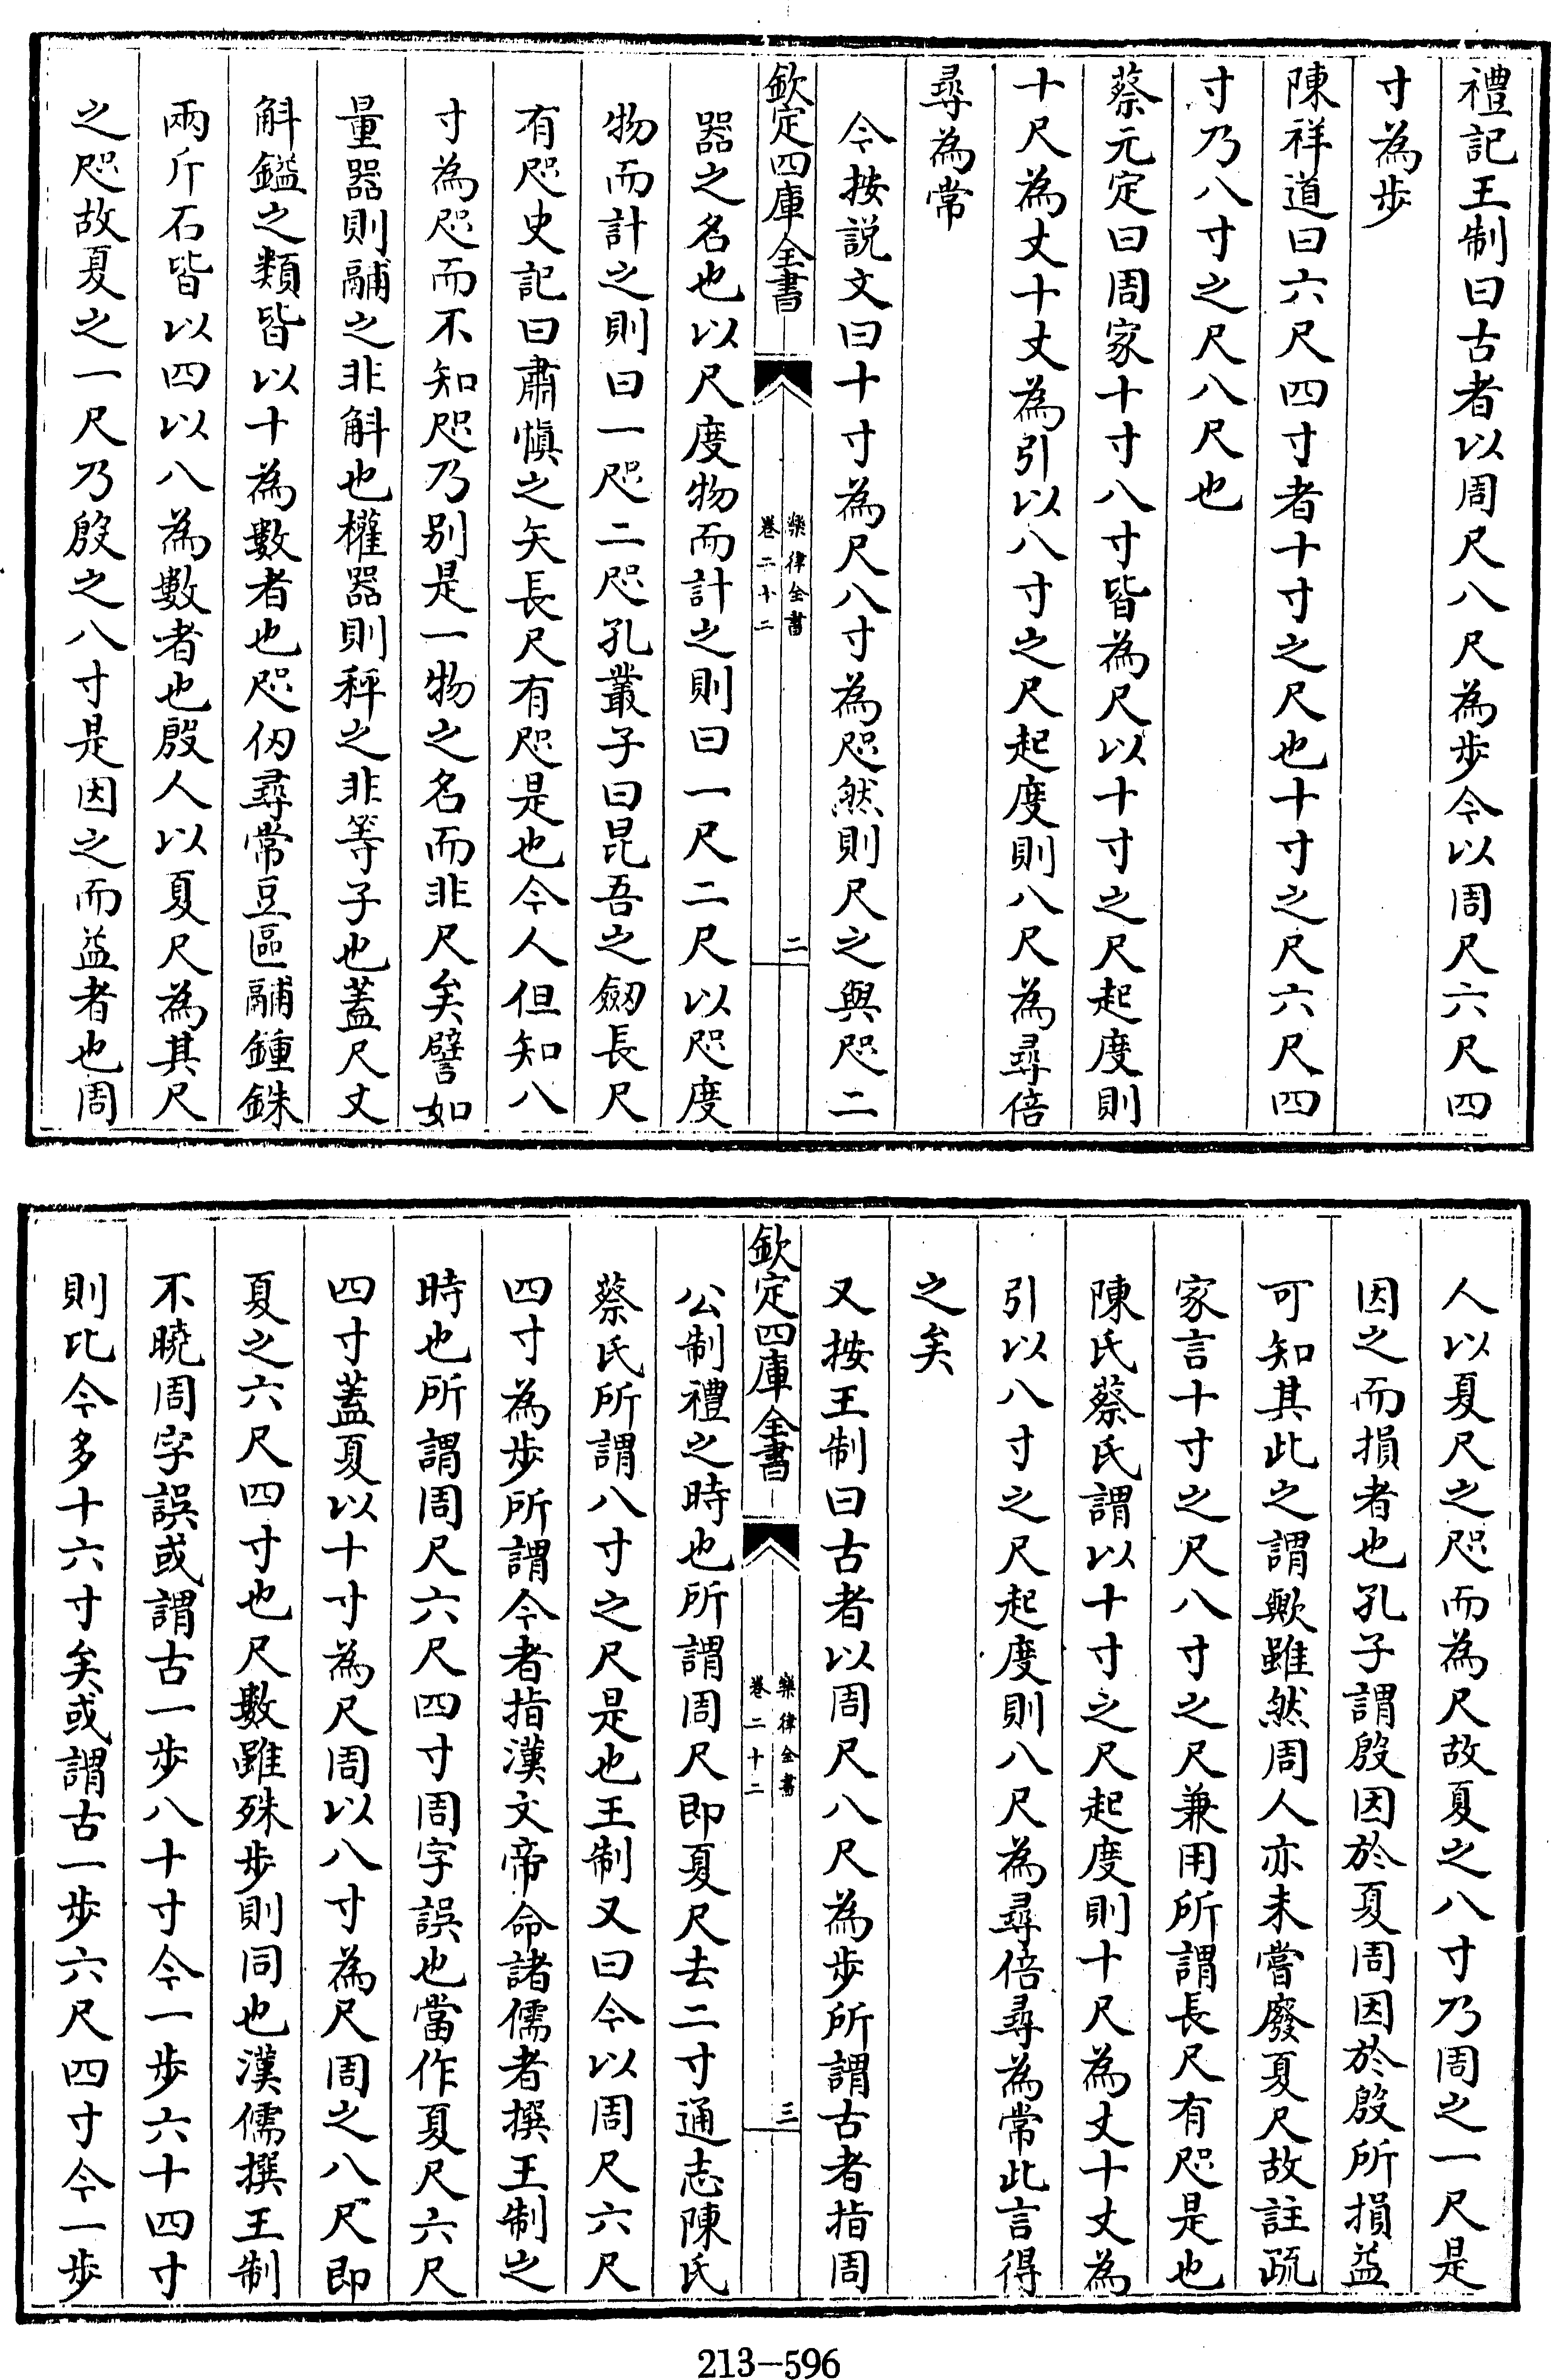 禮記王制曰古者以周尺八尺為步今以周尺六尺四
寸為步
陳祥道曰六尺四寸者十寸之尺也十寸之尺六尺四
寸乃八寸之尺八尺也
蔡元定曰周家十寸八寸皆為尺以十寸之尺起度則
十尺為丈十丈為引以八寸之尺起度則八尺為尋倍
尋為常
今按説文曰十寸為尺八寸為咫然則尺之與咫二
欽定四庫全書
樂律全書
卷二十二
二
器之名也以尺度物而計之則曰一尺二尺以咫度
物而計之則曰一咫二咫孔叢子曰昆吾之劒長尺
有咫史記曰肅慎之矢長尺有咫是也今人但知八
寸為咫而不知咫乃别是一物之名而非尺矣譬如
量器則鬴之非斛也權器則秤之非等子也蓋尺丈
斛鎰之類皆以十為數者也咫仞尋常豆區鬴鍾銖
兩斤石皆以四以八為數者也殷人以夏尺為其尺
之咫故夏之一尺乃殷之八寸是因之而益者也周
人以夏尺之咫而為尺故夏之八寸乃周之一尺是
因之而損者也孔子謂殷因於夏周因於殷所損益
可知其此之謂歟雖然周人亦未嘗廢夏尺故註疏
家言十寸之尺八寸之尺兼用所謂長尺有咫是也
陳氏蔡氏謂以十寸之尺起度則十尺為丈十丈為
引以八寸之尺起度則八尺為尋倍尋為常此言得
之矣
又按王制曰古者以周尺八尺為步所謂古者指周
欽定四庫全書
樂律全書
卷二十二
三
公制禮之時也所謂周尺即夏尺去二寸通志陳氏
蔡氏所謂八寸之尺是也王制又曰今以周尺六尺
四寸為步所謂今者指漢文帝命諸儒者撰王制之
時也所謂周尺六尺四寸周字誤也當作夏尺六尺
四寸蓋夏以十寸為尺周以八寸為尺周之八尺即
夏之六尺四寸也尺數雖殊步則同也漢儒撰王制
不曉周字誤或謂古一步八十寸今一步六十四寸
則比今多十六寸矣或謂古一步六尺四寸今一步
213—596